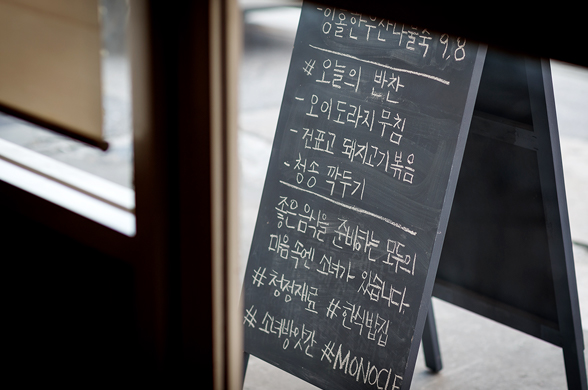 # 오늘의 반찬
- 오이도라지무침
- 건표고 돼지고기볶음
- 청송 깍두기
좋은음식을 준비하는 모두의
마음속엔 소녀가 있습니다.
#청정재료 #한식밥집
#소녀방앗간 #MONOCLE